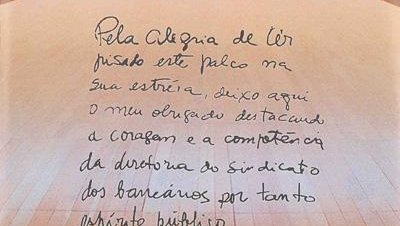 Pela alegria de ter
pisado este palco na
sua estréia, deixo aqui
o meu obrigado destacando
a coragem e a competência
da diretoria do sindicato
dos bancários por tanto
espírito público